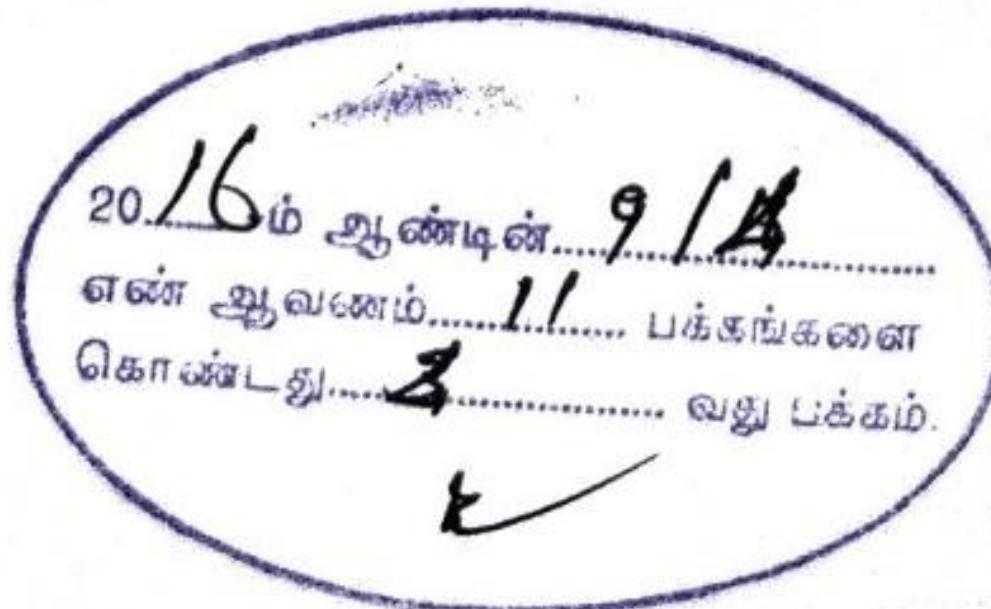 20 16 ம் ஆண்டின் 9 /
எண் ஆவணம் 11 பக்கங்களை
கொண்டது வது பக்கம்.